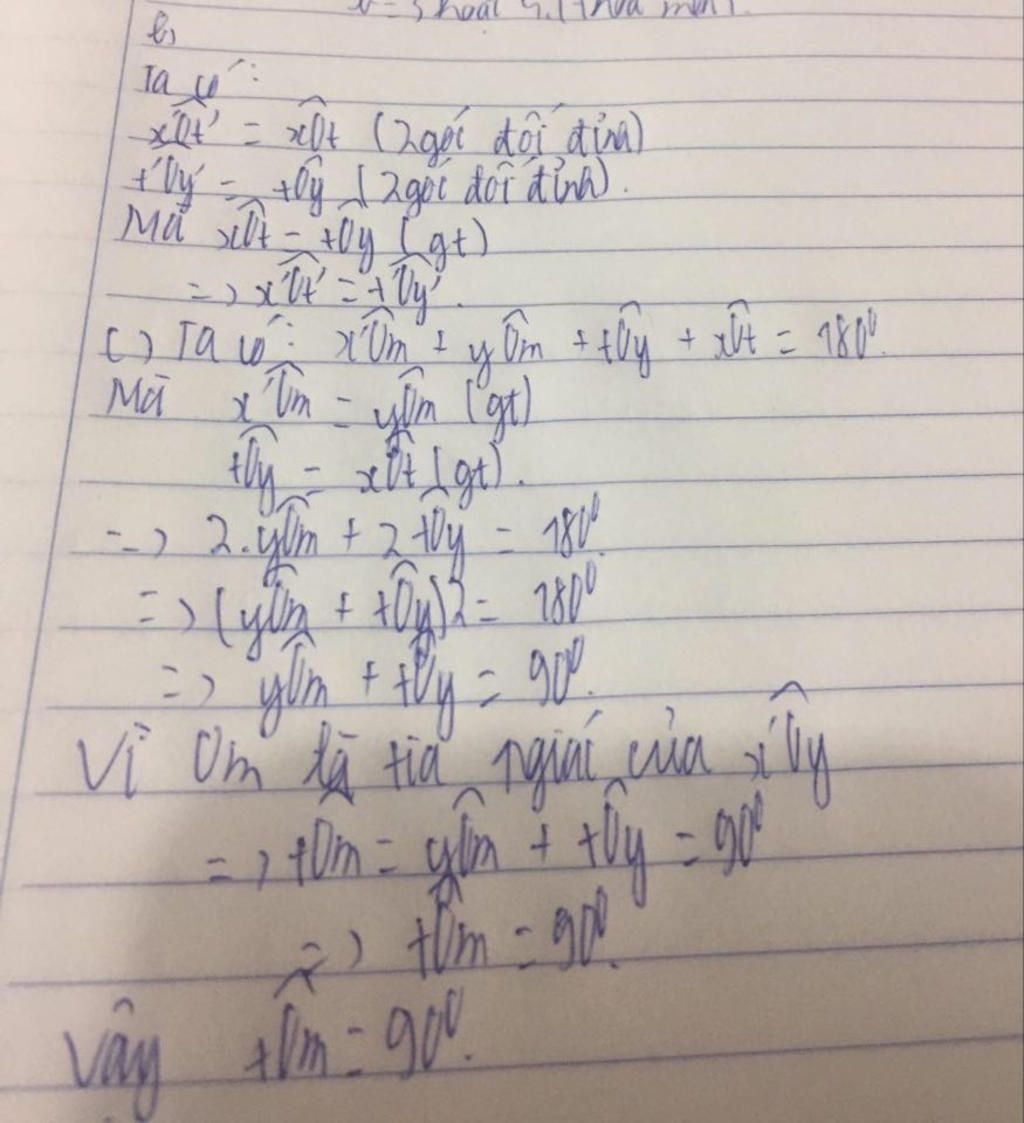 b,
Ta có:
x'Ot' = xOt (2 góc đối đỉnh)
t'Oy' = tOy (2 góc đối đỉnh).
Mà xOt = tOy (gt)
=> x'Ot' = t'Oy'.
c) Ta có: x'Om + yOm + tOy + xOt = 180⁰.
Mà x'Om = yOm (gt)
tOy = xOt (gt).
=> 2.yOm + 2 tOy = 180⁰.
=> (yOm + tOy)2 = 180⁰
=> yOm + tOy = 90⁰.
Vì Om là tia của x'Oy
=> tOm = yOm + tOy = 90⁰
=> tOm = 90⁰.
Vậy tOm = 90⁰.